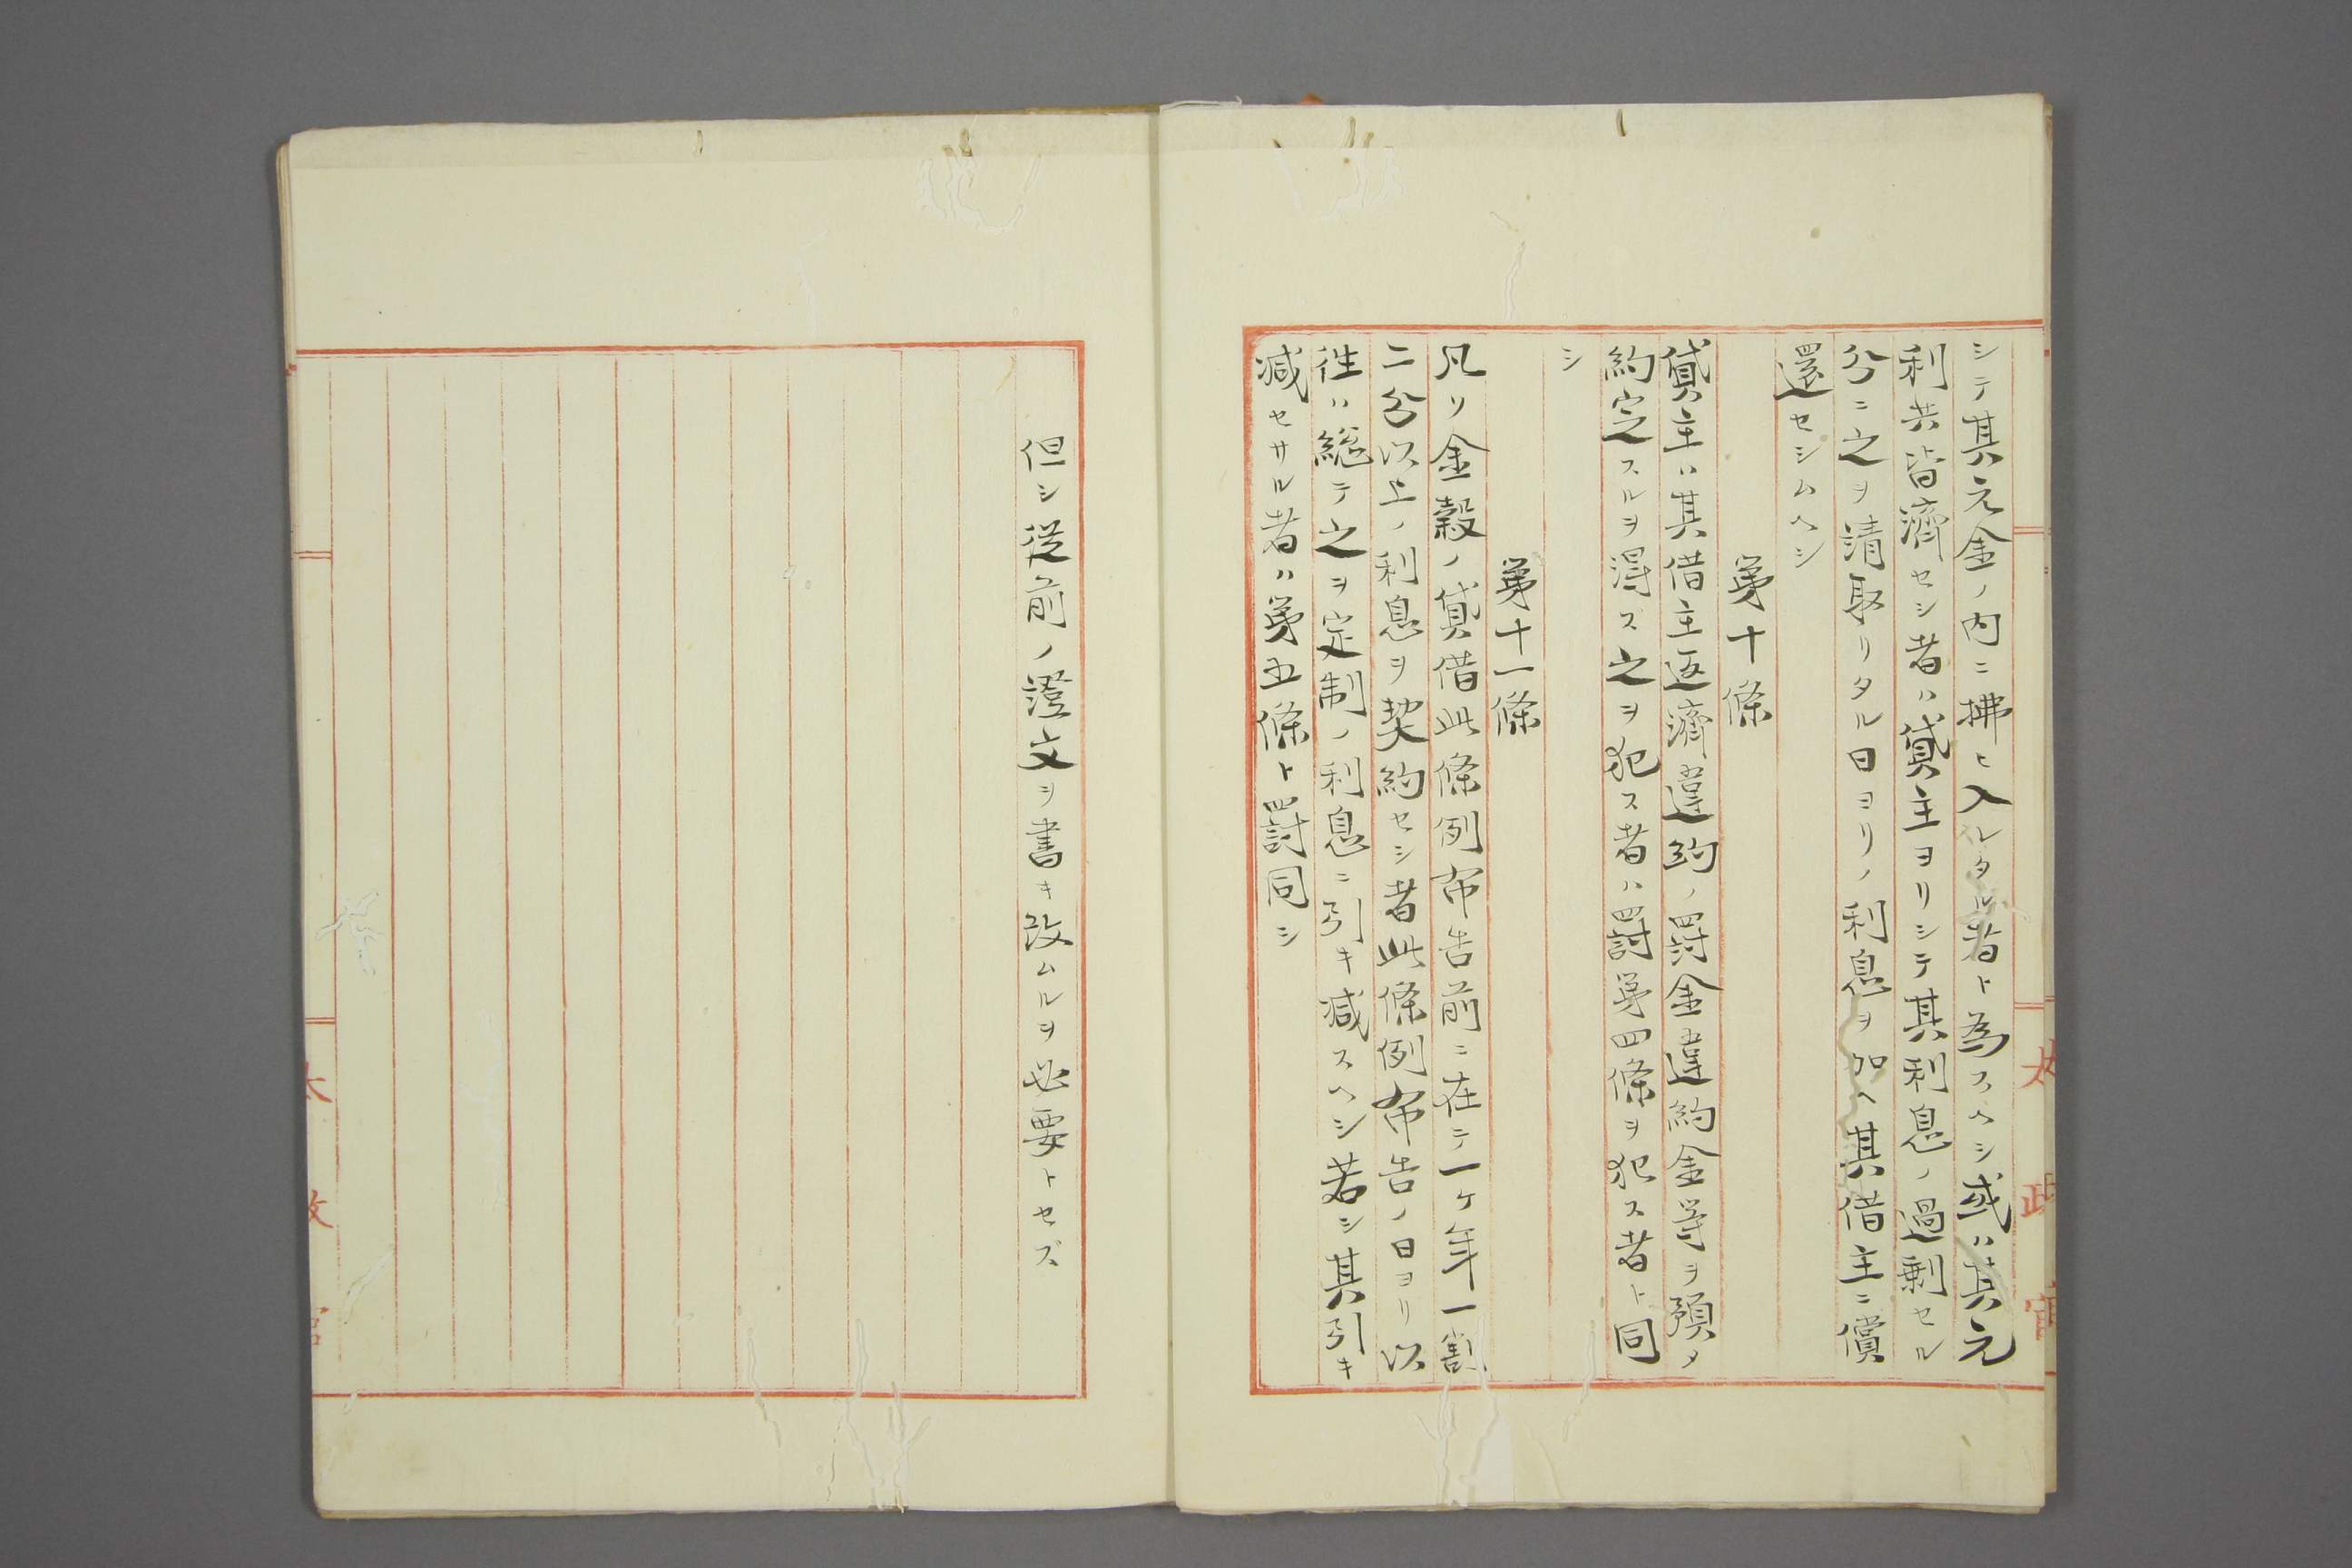 シテ其元金ノ内ニ拂ヒ入レタル者ト為スヘシ或ハ其元
利共皆濟セシ者ハ貸主ヨリシテ其利息ノ過剰セル
分ニ之ヲ請取リタル日ヨリノ利息ヲ加ヘ其借主ニ償
還セシムヘシ
第十條
貸主ハ其借主返濟違約ノ罰金違約金等ヲ預メ
約定スルヲ得ズ之ヲ犯ス者ハ罰第四條ヲ犯ス者ト同
シ
第十一條
凡リ金穀ノ貸借此條例布告前ニ在テ一ケ年一割
二分以上ノ利息ヲ契約セシ者此條例布告ノ日ヨリ以
往ハ総テ之ヲ定制ノ利息ニ引キ減スヘシ若シ其引キ
減セサル者ハ第五條ト罰同シ
但シ従前ノ證文ヲ書キ改ムルヲ必要トセズ
太政官